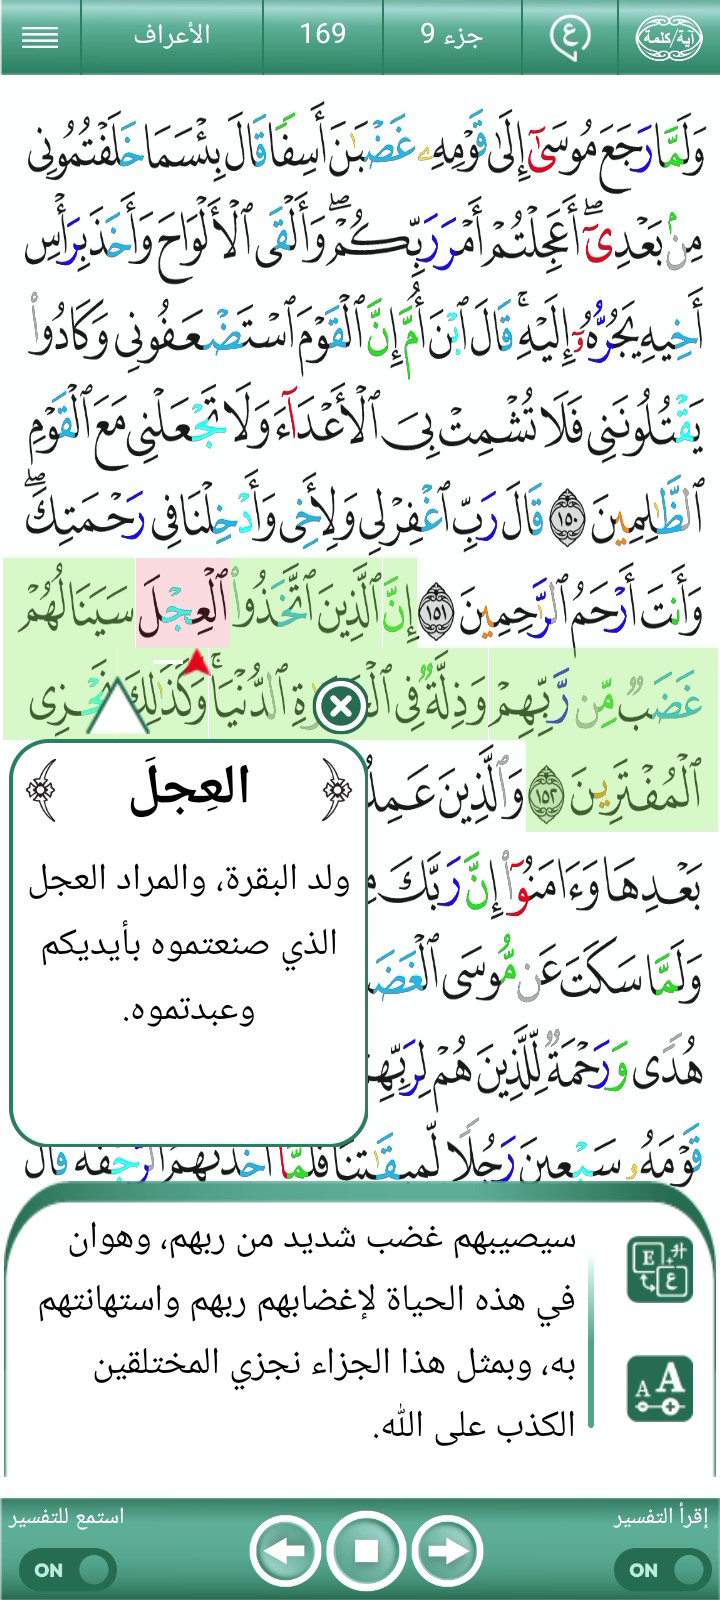 آية/كلمة
ع
جزء 9
169
الأعراف
وَلَمَّا رَجَعَ مُوسَىٰٓ إِلَىٰ قَوْمِهِۦ غَضْبَٰنَ أَسِفًا قَالَ بِئْسَمَا خَلَفْتُمُونِى
مِنۢ بَعْدِىٓ ۖ أَعَجِلْتُمْ أَمْرَ رَبِّكُمْ ۖ وَأَلْقَى ٱلْأَلْوَاحَ وَأَخَذَ بِرَأْسِ
أَخِيهِ يَجُرُّهُۥٓ إِلَيْهِ ۚ قَالَ ٱبْنَ أُمَّ إِنَّ ٱلْقَوْمَ ٱسْتَضْعَفُونِى وَكَادُوا۟
يَقْتُلُونَنِى فَلَا تُشْمِتْ بِىَ ٱلْأَعْدَآءَ وَلَا تَجْعَلْنِى مَعَ ٱلْقَوْمِ
ٱلظَّٰلِمِينَ ١٥٠ قَالَ رَبِّ ٱغْفِرْ لِى وَلِأَخِى وَأَدْخِلْنَا فِى رَحْمَتِكَ ۖ
وَأَنتَ أَرْحَمُ ٱلرَّٰحِمِينَ ١٥١ إِنَّ ٱلَّذِينَ ٱتَّخَذُوا۟ ٱلْعِجْلَ سَيَنَالُهُمْ
غَضَبٌ مِّن رَّبِّهِمْ وَذِلَّةٌ فِى ٱلدُّنْيَا ۚ وَكَذَٰلِكَ نَجْزِى
ٱلْمُفْتَرِينَ ١٥٢ وَٱلَّذِينَ
بَعْدِهَا وَءَامَنُوٓا۟ إِنَّ رَبَّكَ
وَلَمَّا سَكَتَ عَن مُّوسَى
هُدًى وَرَحْمَةٌ لِّلَّذِينَ هُمْ
قَوْمَهُۥ سَبْعِينَ رَجُلًا لِّمِيقَٰتِنَا فَلَمَّآ أَخَذَتْهُمُ ٱلرَّجْفَةُ قَالَ
العِجلَ
ولد البقرة، والمراد العجل
الذي صنعتموه بأيديكم
وعبدتموه.
سيصيبهم غضب شديد من ربهم، وهوان
في هذه الحياة لإغضابهم ربهم واستهانتهم
به، وبمثل هذا الجزاء نجزي المختلقين
الكذب على الله.
E ع
A A
إقرأ التفسير
ON
استمع للتفسير
ON